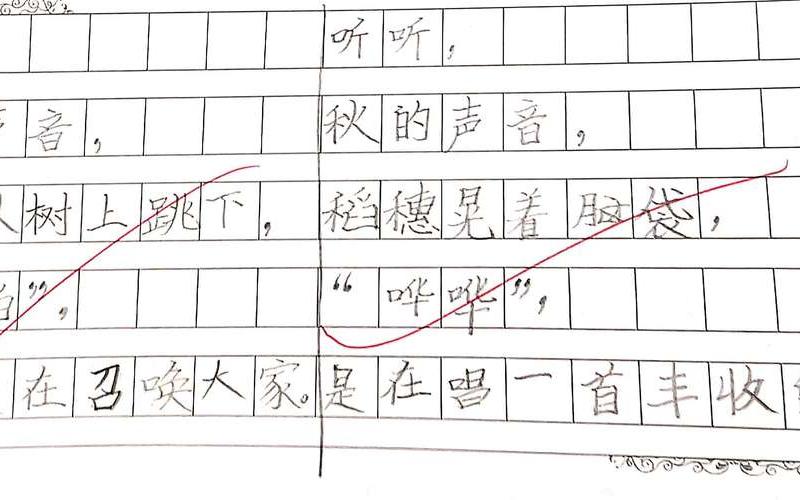 音，
树上跳下，
”，
在召唤大家。
听听，
秋的声音，
稻穗晃着脑袋，
“哗哗”，
是在唱一首丰收